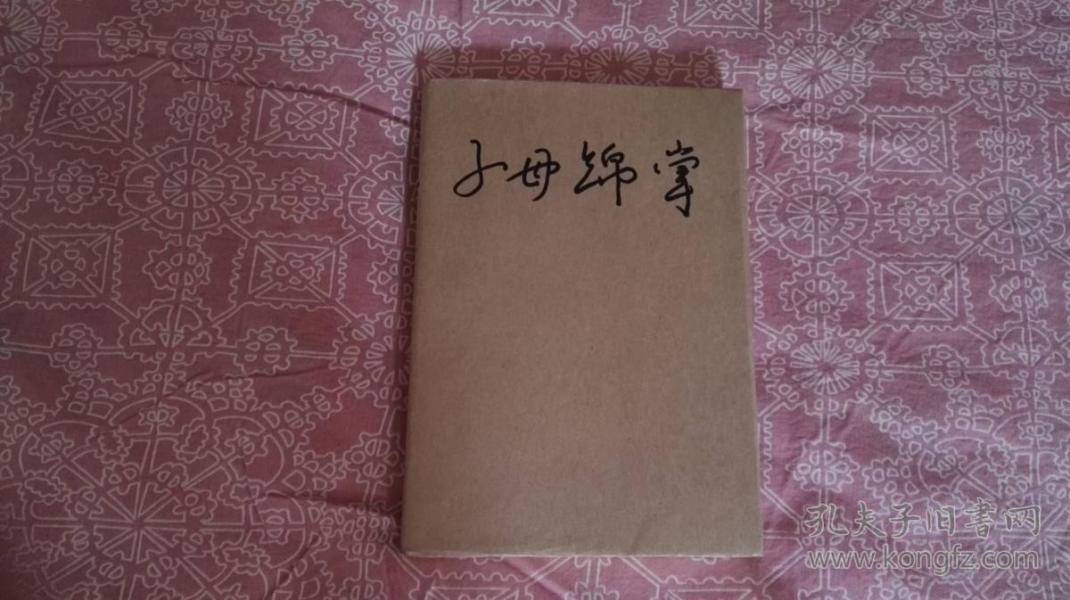 子母锦掌
孔夫子旧書网
www.kongfz.com